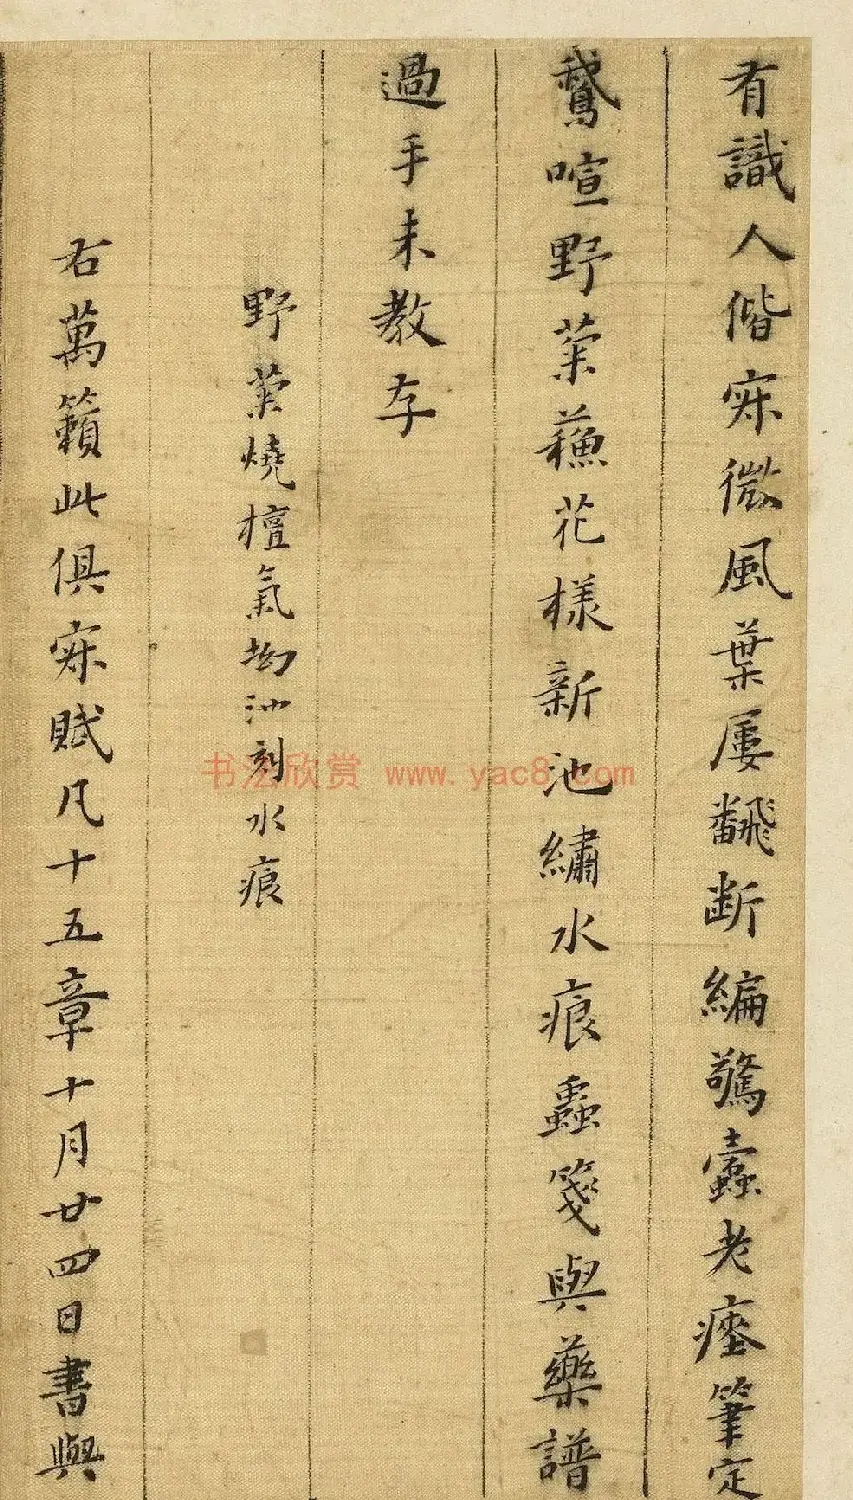 有識人偕寂微風葉屢飜斷編驚蠹老瘞筆定
鵞喧野菜蘓花樣新池繡水痕蟲箋與藥譜
過手未教存
野菜燒檀氣坳沙刻水痕
右萬籟此俱寂賦凡十五章十月廿四日書與
书法欣赏 www.yac8.com